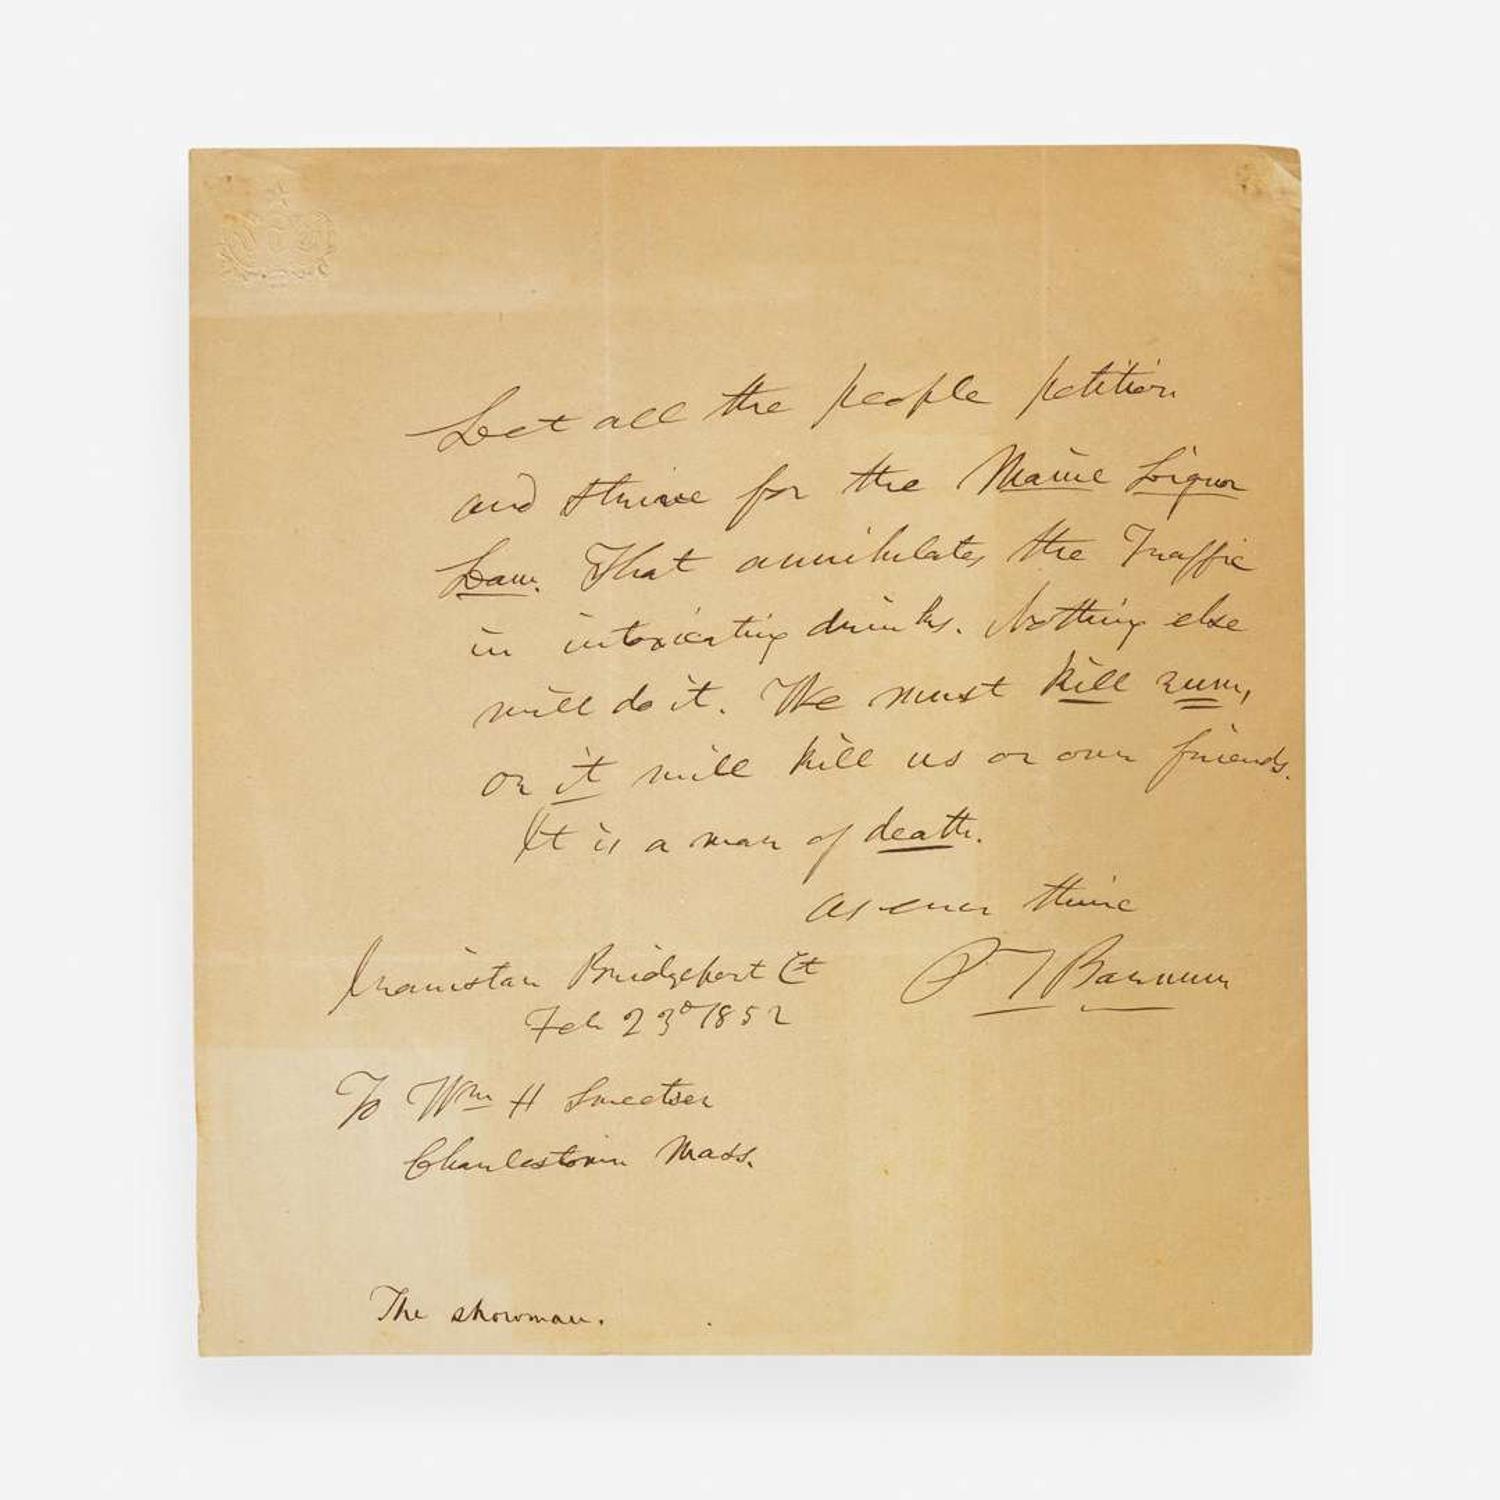 Let all the people petition
and strive for the Maine Liquor
Law. That annihilates the Traffic
in intoxicating drinks. Nothing else
will do it. We must kill rum,
or it will kill us or our friends.
It is a war of death.
As ever thine
P T Barnum
Iranistan Bridgeport Ct
Feb 23d 1852
To Wm H Sweetser
Charlestown Mass.
The showman.